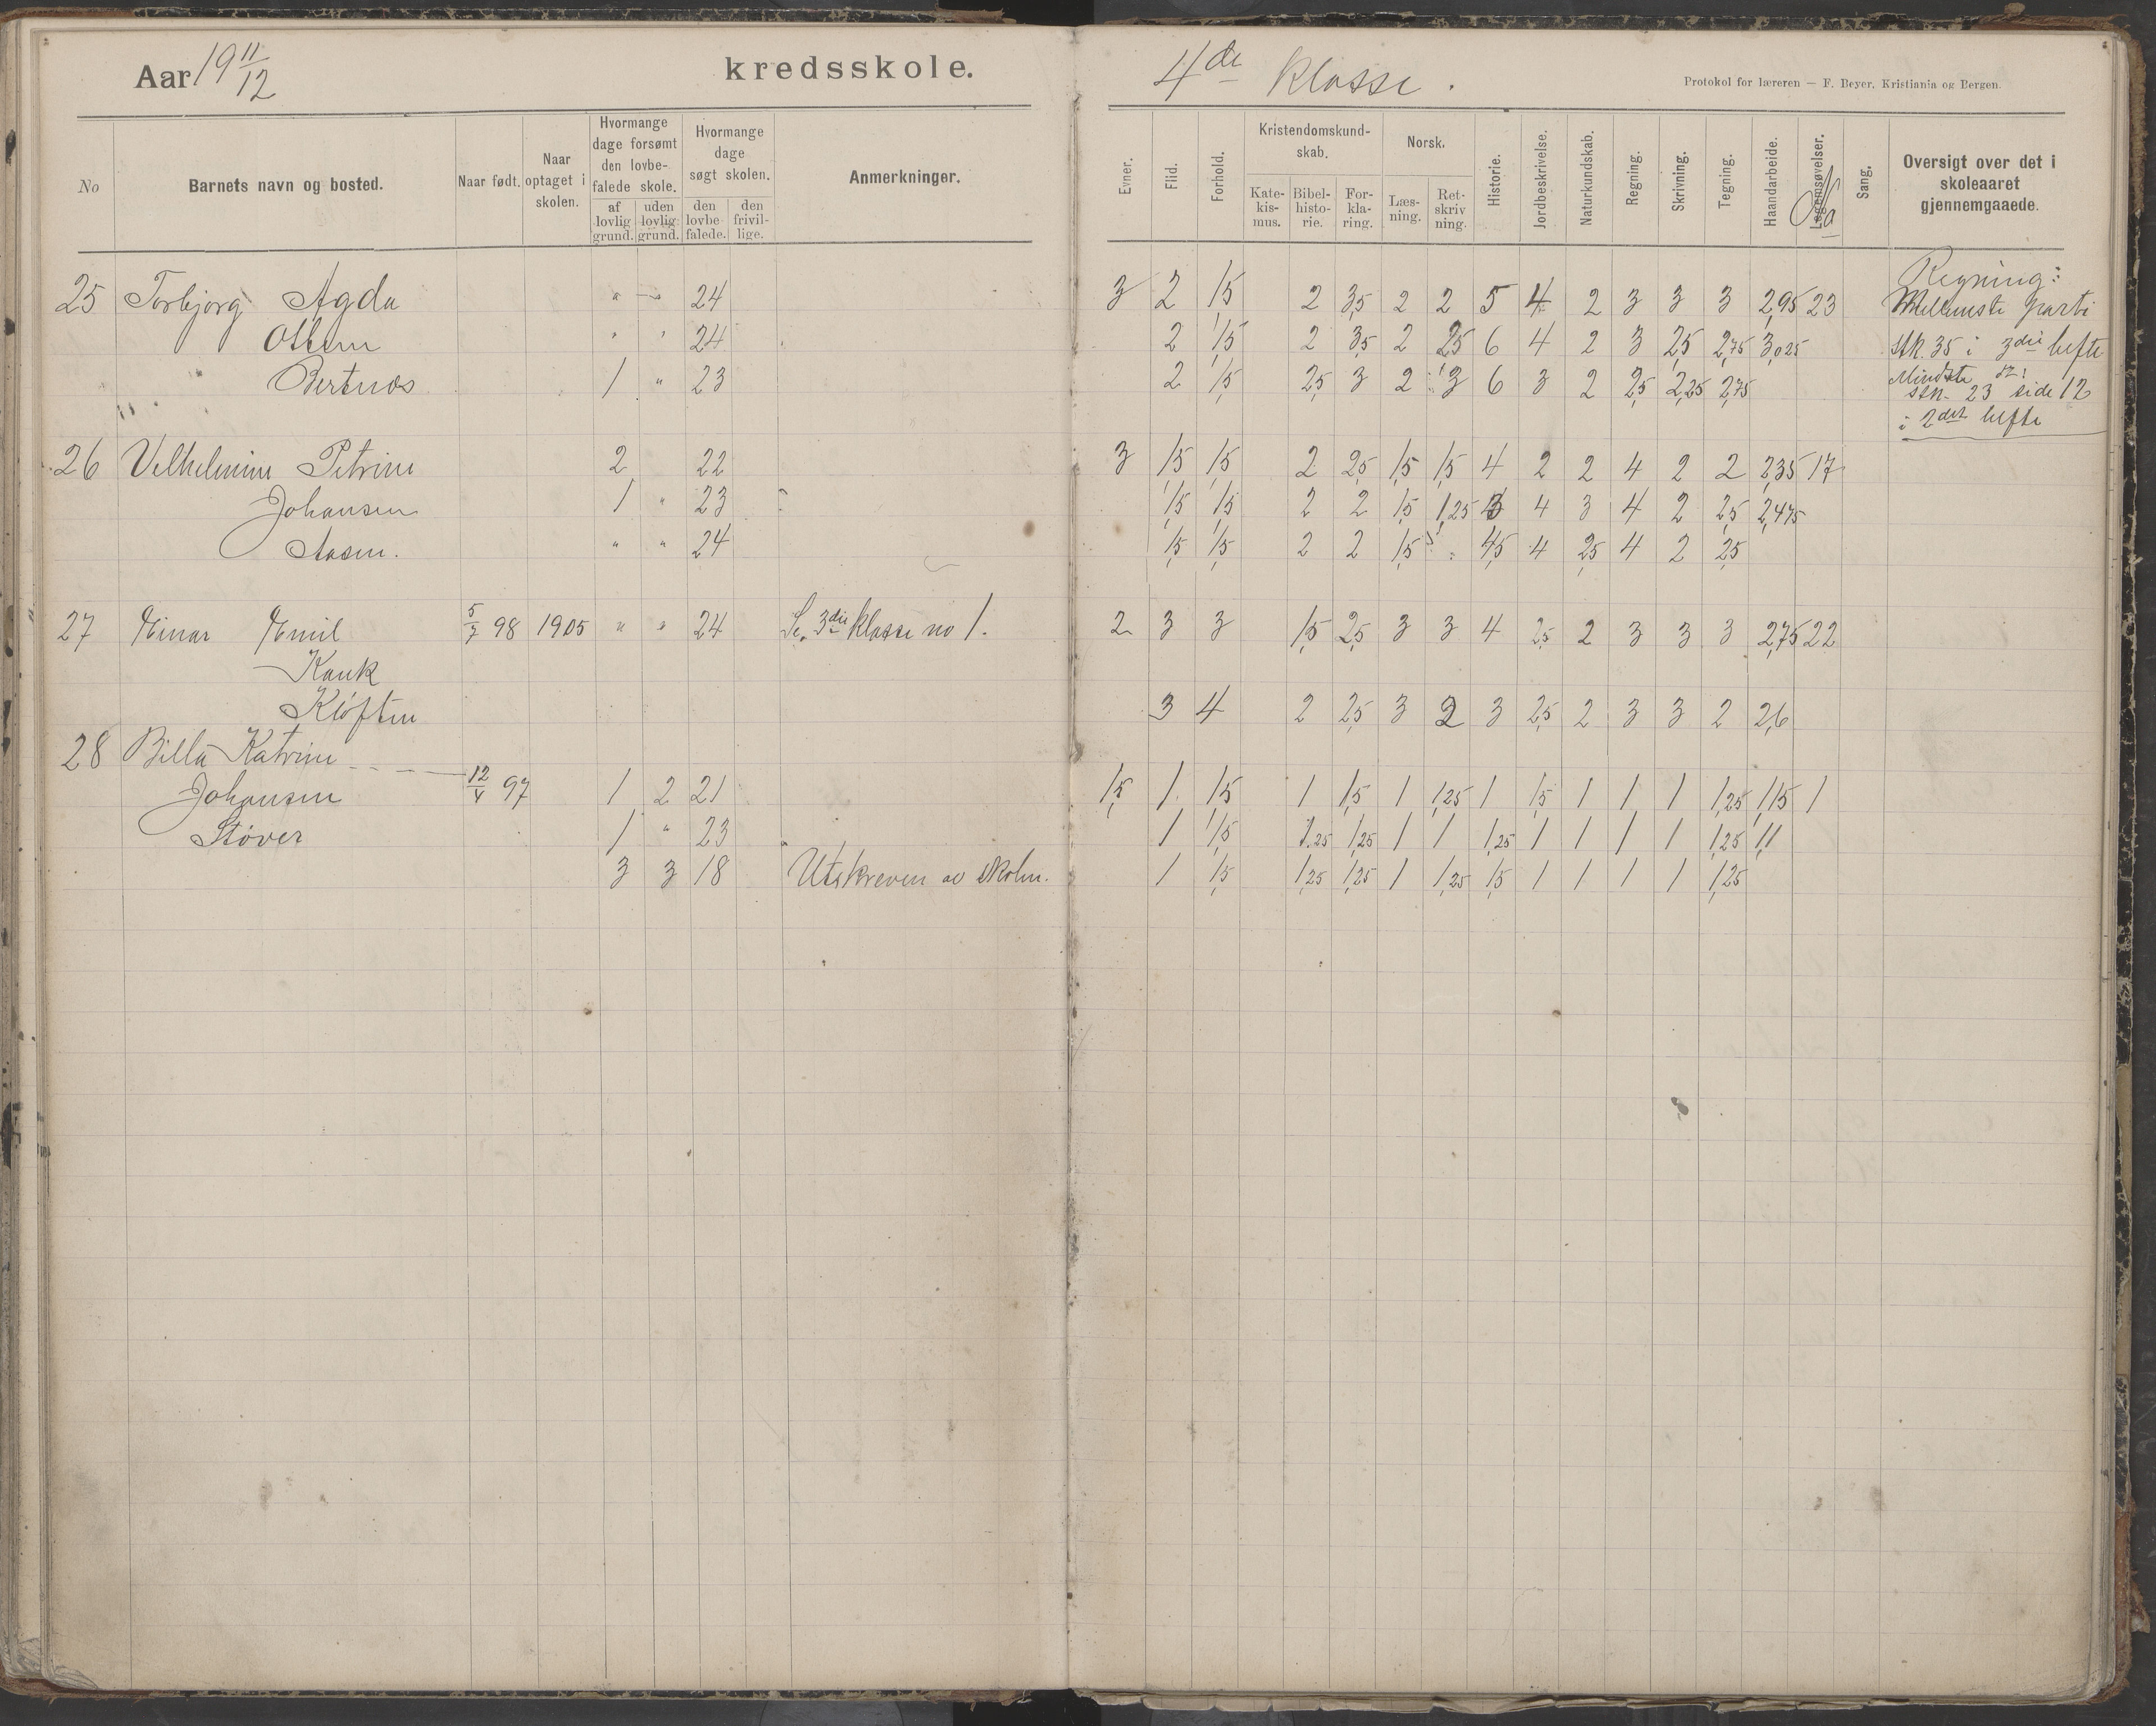 Aar 19 11/12
kredsskole.
4de klasse.
Protokol for læreren — F. Beyer, Kristiania og Bergen.
No
Barnets navn og bosted.
Naar født.
Naar optaget i skolen.
Hvormange dage forsømt den lovbefalede skole.
af lovlig grund.
uden lovlig grund.
Hvormange dage søgt skolen.
den lovbefalede.
den frivillige.
Anmerkninger.
Evner.
Flid.
Forhold.
Kristendomskundskab.
Katekismus.
Bibelhistorie.
Forklaring.
Norsk.
Læsning.
Retskrivning.
Historie.
Jordbeskrivelse.
Naturkundskab.
Regning.
Skrivning.
Tegning.
Haandarbeide.
Legemsøvelser.
No
Sang.
Oversigt over det i skoleaaret gjennemgaaede.
25 Torbjørg Agda " " 24 3 2 1,5 2 3,5 2 2 5 4 2 3 3 3 2,95 23 Regning: Mellemste parti
Olsen " " 24 2 1,5 2 3,5 2 2,5 6 4 2 3 2,5 2,75 3,025 stk. 35 i 3die hefte
Bertnes 1 " 23 2 1,5 2,5 3 2 3 6 3 2 2,5 2,25 2,75 Mindste do: stk. 23 side 12
i 2det hefte
26 Vilhelmine Petrine 2 22 3 1,5 1,5 2 2,5 1,5 1,5 4 2 2 4 2 2 2,35 17
Johansen 1 " 23 1,5 1,5 2 2 1,5 1,25 3 4 3 4 2 2,5 2,475
Aasen. " " 24 1,5 1,5 2 2 1,5 4,5 4 2,5 4 2 2,5
27 Einar Emil 5/7 98 1905 " " 24 Se 3die klasse no 1. 2 3 3 1,5 2,5 3 3 4 2,5 2 3 3 3 2,75 22
Kauk
Kløften 3 4 2 2,5 3 2 3 2,5 2 3 3 2 2,6
28 Billa Katrine
Johansen 12/4 97 1 2 21 1,5 1 1,5 1 1,5 1 1,25 1 1,5 1 1 1 1,25 1,15 1
Støver 1 " 23 1 1,5 1,25 1,25 1 1 1,25 1 1 1 1 1,25 1,1
3 3 18 Utskreven av skolen. 1 1,5 1,25 1,25 1 1,25 1,5 1 1 1 1 1,25